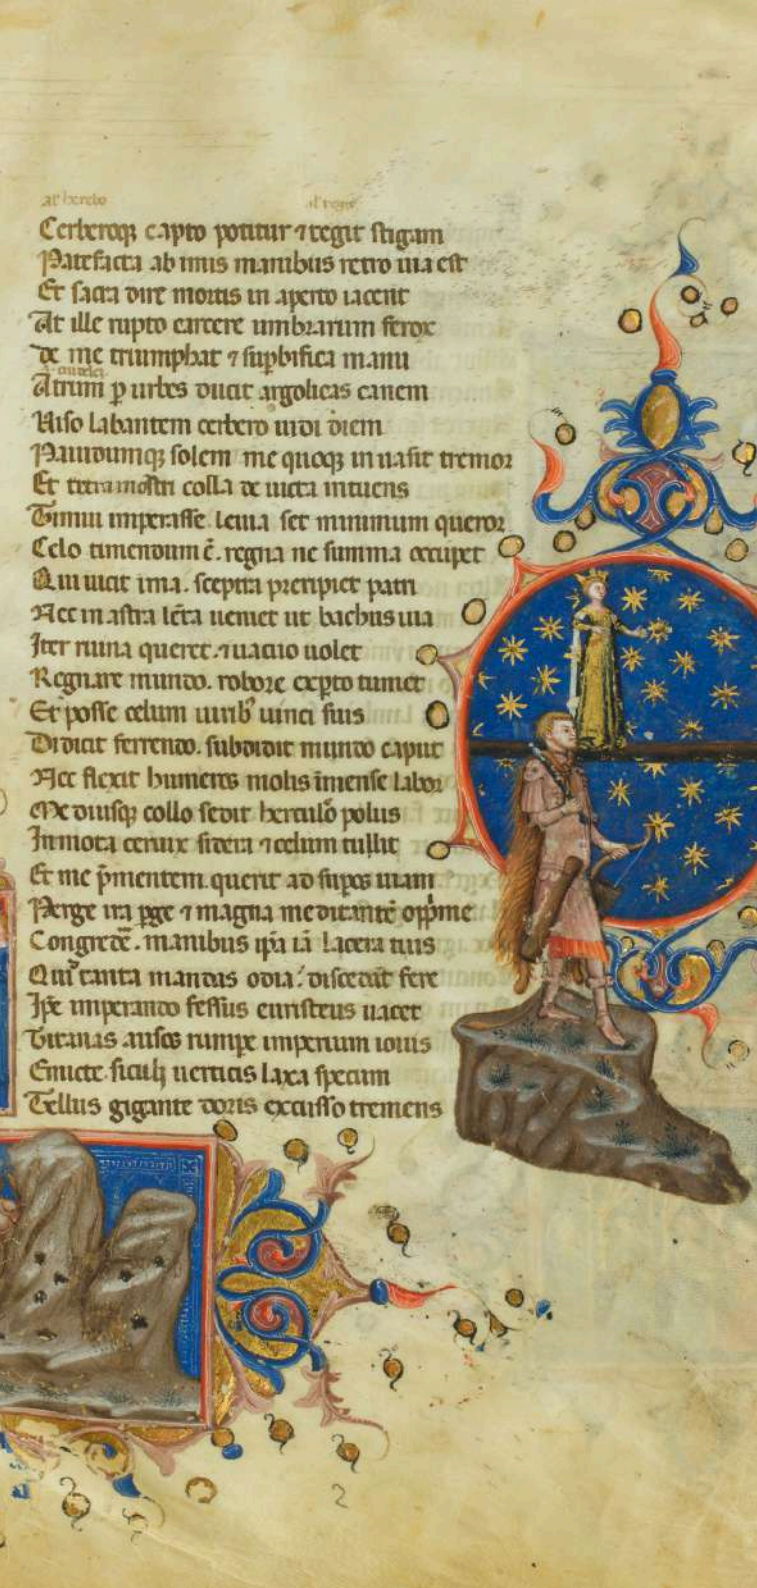 al' hercto al' regit
Cerberoqȝ capto potitur ⁊ regit stigam
Patefacta ab imis manibus retro uia est
Et sacra dire mortis in aperto iacent
At ille rupto carcere umbrarum ferox
de me triumphat ⁊ suꝑbifica manu
Atrum ꝑ urbes ducit argolicas canem
Uiso labantem cerbero uidi diem
Pauidumqȝ solem me quoqȝ inuasit tremor
Et terna mostri colla de uicta intuens
Timui imperasse leuia set minimum queror
Celo timendum ē. regna ne summa occupet
Qui uicit ima. sceptra precipiet patri
Nec in astra lēta ueniet ut bachus uia
Iter ruina queret. ⁊ uacuo uolet
Regnare mundo. robore exꝑto tumet
Et posse celum uiribꝰ uinci suis
Didicit ferrendo. subdidit mundo caput
Nec flexit humeros molis īmense labor
Mediusqȝ collo sedit herculeo polus
Inmota ceruix sidera ⁊ celum tullit
Et me p̄mentem. querit ad suꝑos uiam
Perge ira ꝑge ⁊ magna meditantē opp̄me
Congredē. manibus ip̄a iā lacera tuis
Quid tanta mandas odia. discedāt fere
Ip̄e imperando fessus euristeus uacet
Titanas ausos rumpe imperium iouis
Emicte. siculj uerticis laxa specum
Tellus gigante doris excusso tremens
2